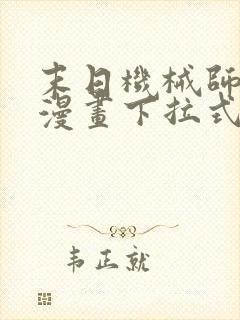 末日機械師
漫畫下拉式
韦正就